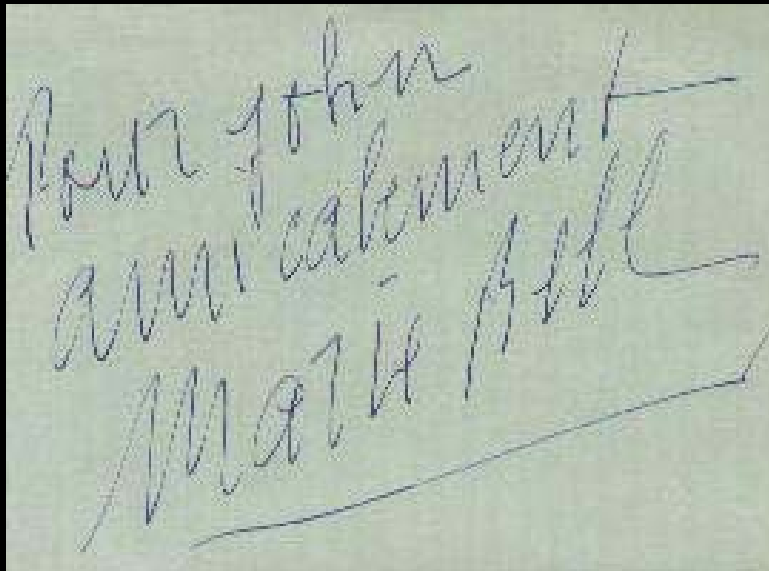 Pour John
amicalement
Marie Bell